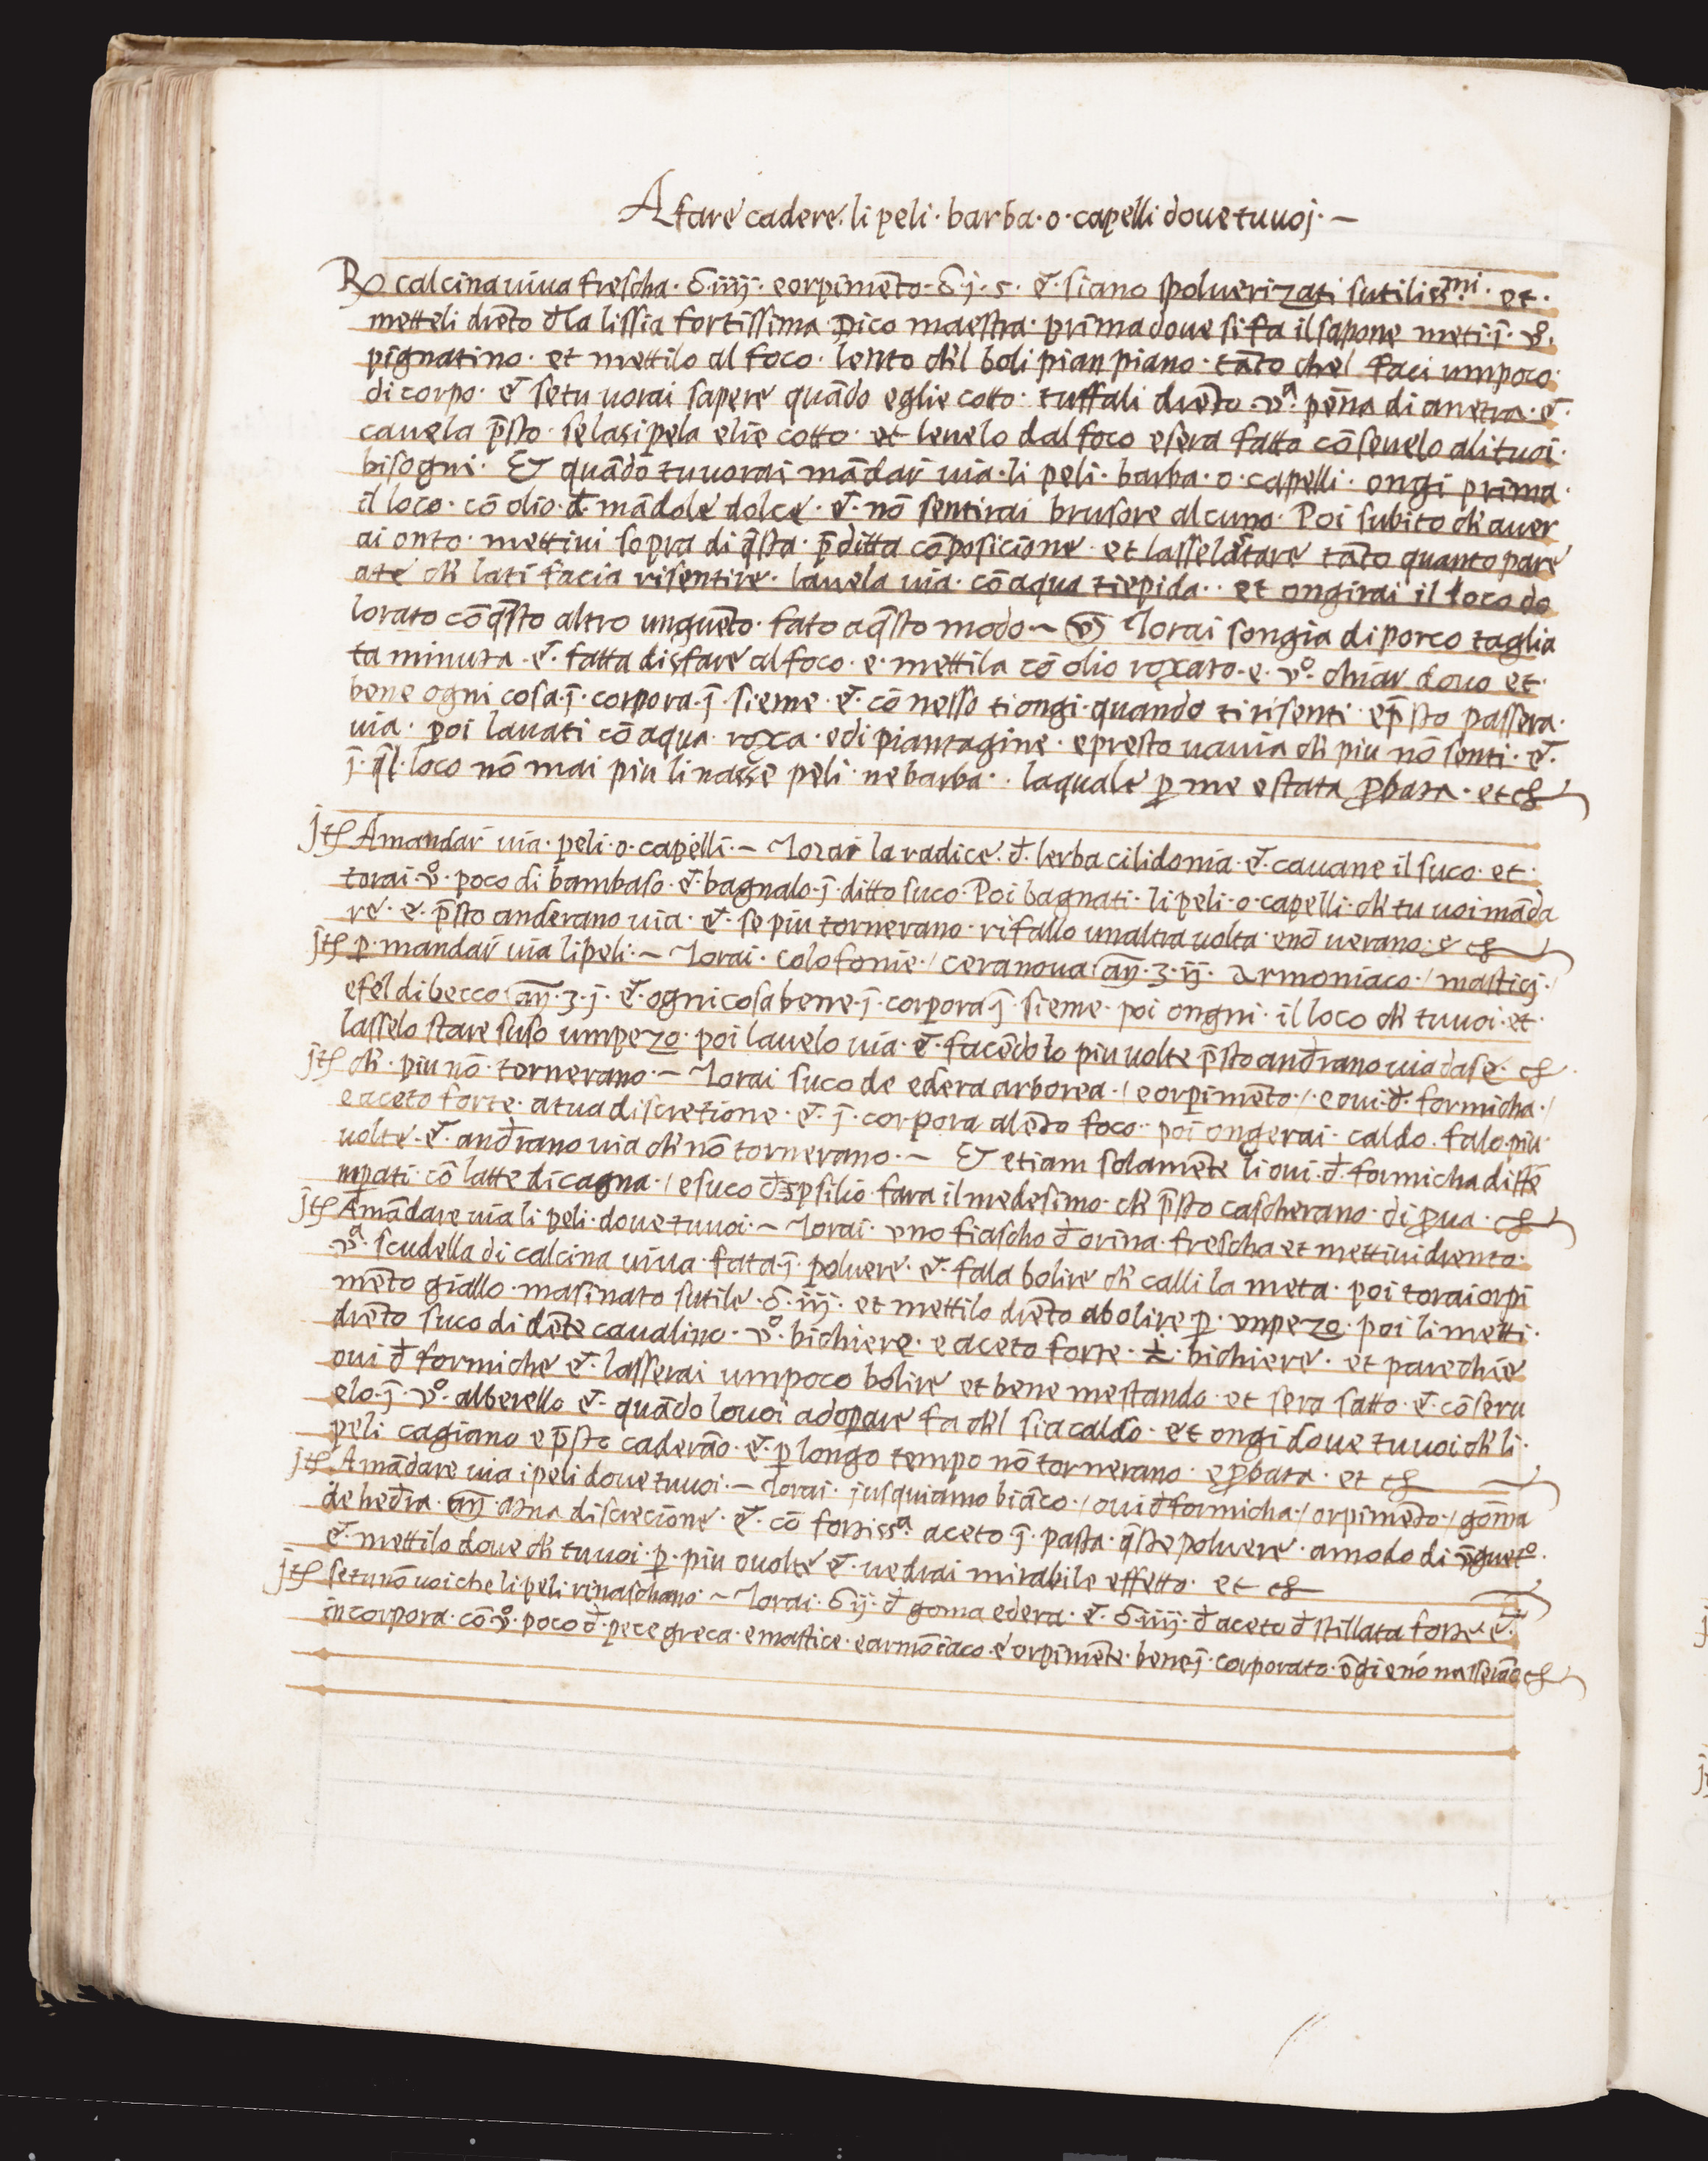 A fare cadere. li peli · barba · o · capelli doue tu uoj · ~
Rx calcina uiua frescha · δ · iiij · e orpimēto · δ · j · s · et · siano spoluerizati sutiliss.mi · et ·
metteli drēto đla lissia fortissima Dico maestra · prima doue si fa il sapone meti · ī · vº ·
pignatino · et mettilo al foco · lento ch̄l boli pian piano · tāto chel faci umpoco ·
di corpo · et se tu uorai sapere quādo eglie cotto · tuffali drēto · vª · pēna di anetra · et ·
cauela p̄sto · se lasi pela elie cotto · et leuelo dal foco e sera fatto cōseuelo ali tuoi ·
bisogni · Et quādo tu uorai mādar̄ uia · li peli · barba · o · capelli · ongi prima ·
il loco · cō olio · đ · mādole dolce · et · nō sentirai brusore alcuno · Poi subito ch̄ auer
ai onto · mettiui sopra di q̄sta · p̄ditta cōposicione · et lasselastare tāto quanto pare
a te ch̄ lati facia risentire · lauela uia · cō aqua tiepida · · et ongirai il loco do
lorato cō q̄sto altro unguēto · fato a q̄sto modo ~ Torai songia di porco taglia
ta minuta · et · fatta disfare al foco · e · mettila cō olio roxato · e · vº · chiar douo et ·
bene ogni cosa · ī · corpora · ī · sieme · et · cō nesso ti ongi · quando ti risenti · e p̄sto passera ·
uia · poi lauati cō aqua · roxa · e di piantagine · e presto ua uia ch̄ piu nō senti · et ·
ī · q̄l · loco nō mai piu li nasse peli · ne barba · · laquale ꝑ me e stata ꝓbata · et c̃
jtem A mandar̄ uia · peli · o · capelli · ~ Torai la radice · đ · lerba cilidonia · et · cauane il suco · et ·
torai · vº · poco di bambaso · et · bagnalo · ī · ditto suco · Poi bagnati · li peli · o · capelli · ch̄ tu uoi māda
re · e · p̄sto anderano uia · et · se piu tornerano · rifallo unaltra uolta · e nō uerano · et c̃
jtem ꝑ · mandar̄ uia li peli · ~ Torai · colofonie · / cera noua / añ · ʒ · ij · Armoniaco · / masticj · /
e fel di becco / añ · ʒ · j · et · ogni cosa bene · ī · corpora · ī · sieme · poi ongni · il loco ch̄ tu uoi · et ·
lasselo stare suso umpezo · poi lauelo uia · et · facēdolo piu uolte p̄sto anđrano uia da se · c̃
jtem ch̄ · piu nō · tornerano · ~ Torai suco de edera arborea · / e orpimēto · / · e oui · đ · formicha · /
e aceto forte · a tua discretione · et · ī · corpora a lēto foco · · poi ongerai · caldo · falo · piu ·
uolte · et · anđrano uia ch̄ nō tornerano · ~ Et etiam solamēte li oui · đ · formicha distē
mpati · cō latte di cagna · / e suco đ psilio · fara il medesimo · ch̄ p̄sto cascherano · di ꝓua · c̃
jtem A mādare uia li peli · doue tu uoi · ~ Torai · vno fiascho đ orina · frescha et mettiui drento ·
vª · scudella di calcina uiua · fata · ī · poluere · et · fala bolire ch̄ calli la meta · poi torai orpi
mēto giallo · masinato sutile · δ · iij · et mettilo drēto a bolire ꝑ · vnpezo · poi li metti ·
drēto suco di dēte caualino · vº · bichiere · e aceto forte · ½ · bichiere · et parechie
oui đ formiche et · lasserai umpoco bolire et bene mestando · et sera fatto · et · cōseru
elo · ī · vº · alberello et · quādo louoi adoꝑare fa ch̄l sia caldo · et ongi doue tu uoi ch̄ li ·
peli cagiano e p̄sto caderāo · et · ꝑ longo tempo nō tornerano · e ꝓbata · et c̃
jtem A mādare uia i peli doue tu uoi · ~ Torai · jusquiamo biāco · / oui đ formicha · / orpimēto · / gōma
de heđra · añ · a tua discrecione · et · cō fortissª · aceto ī · pasta · q̄ste poluere · a modo di v̄guetº ·
et · mettilo doue ch̄ tu uoi · ꝑ · piu ouolte et · uedrai mirabile effetto · et c̃
jtem se tu nō uoi che li peli renaschano · ~ Torai · δ ij · đ goma edera · et · δ · iiij · đ aceto đ stillata forte · et ·
in corpora · cō vº · poco đ · pece greca · e mastice · e armōiaco · e orpimēte · bene ī · corporato · ōgi e nō nasserāo c̃